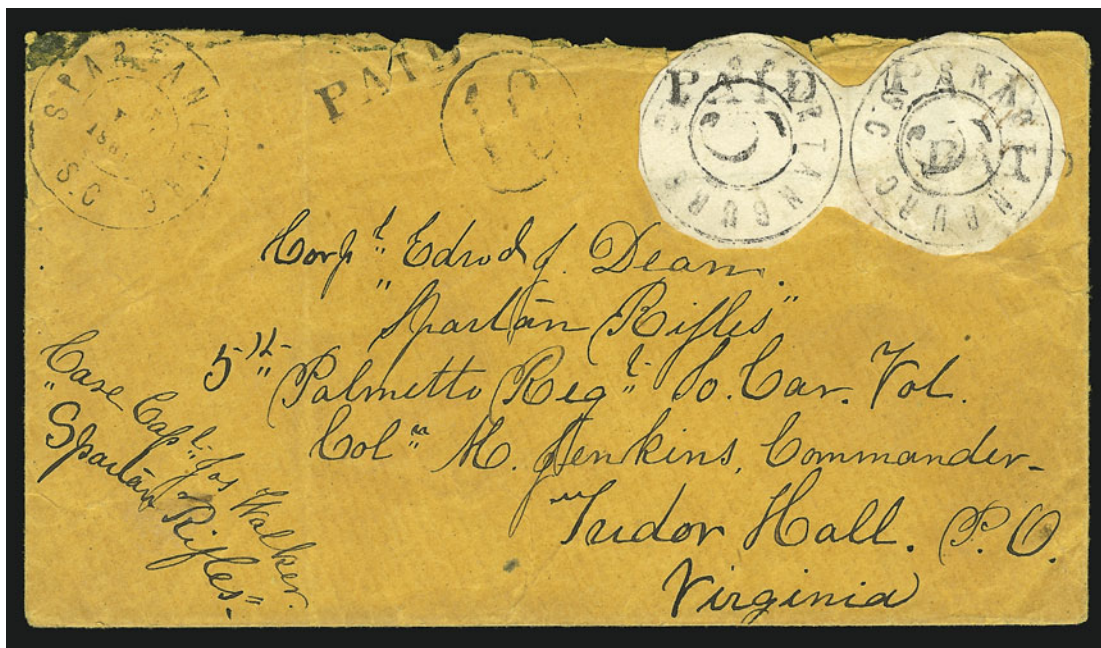 SPARTANBURG S.C. 1861
PAID 10
SPARTANBURG S.C. PAID 5
SPARTANBURG S.C. PAID 5 PAID
Corp.l Edwd J. Dean.
"Spartan Rifles"
5th Palmetto Reg.t So. Car. Vol.
Col.n M. Jenkins, Commander-
Tudor Hall. P.O.
Virginia
Care Capt. Jos Walker.
"Spartan Rifles"